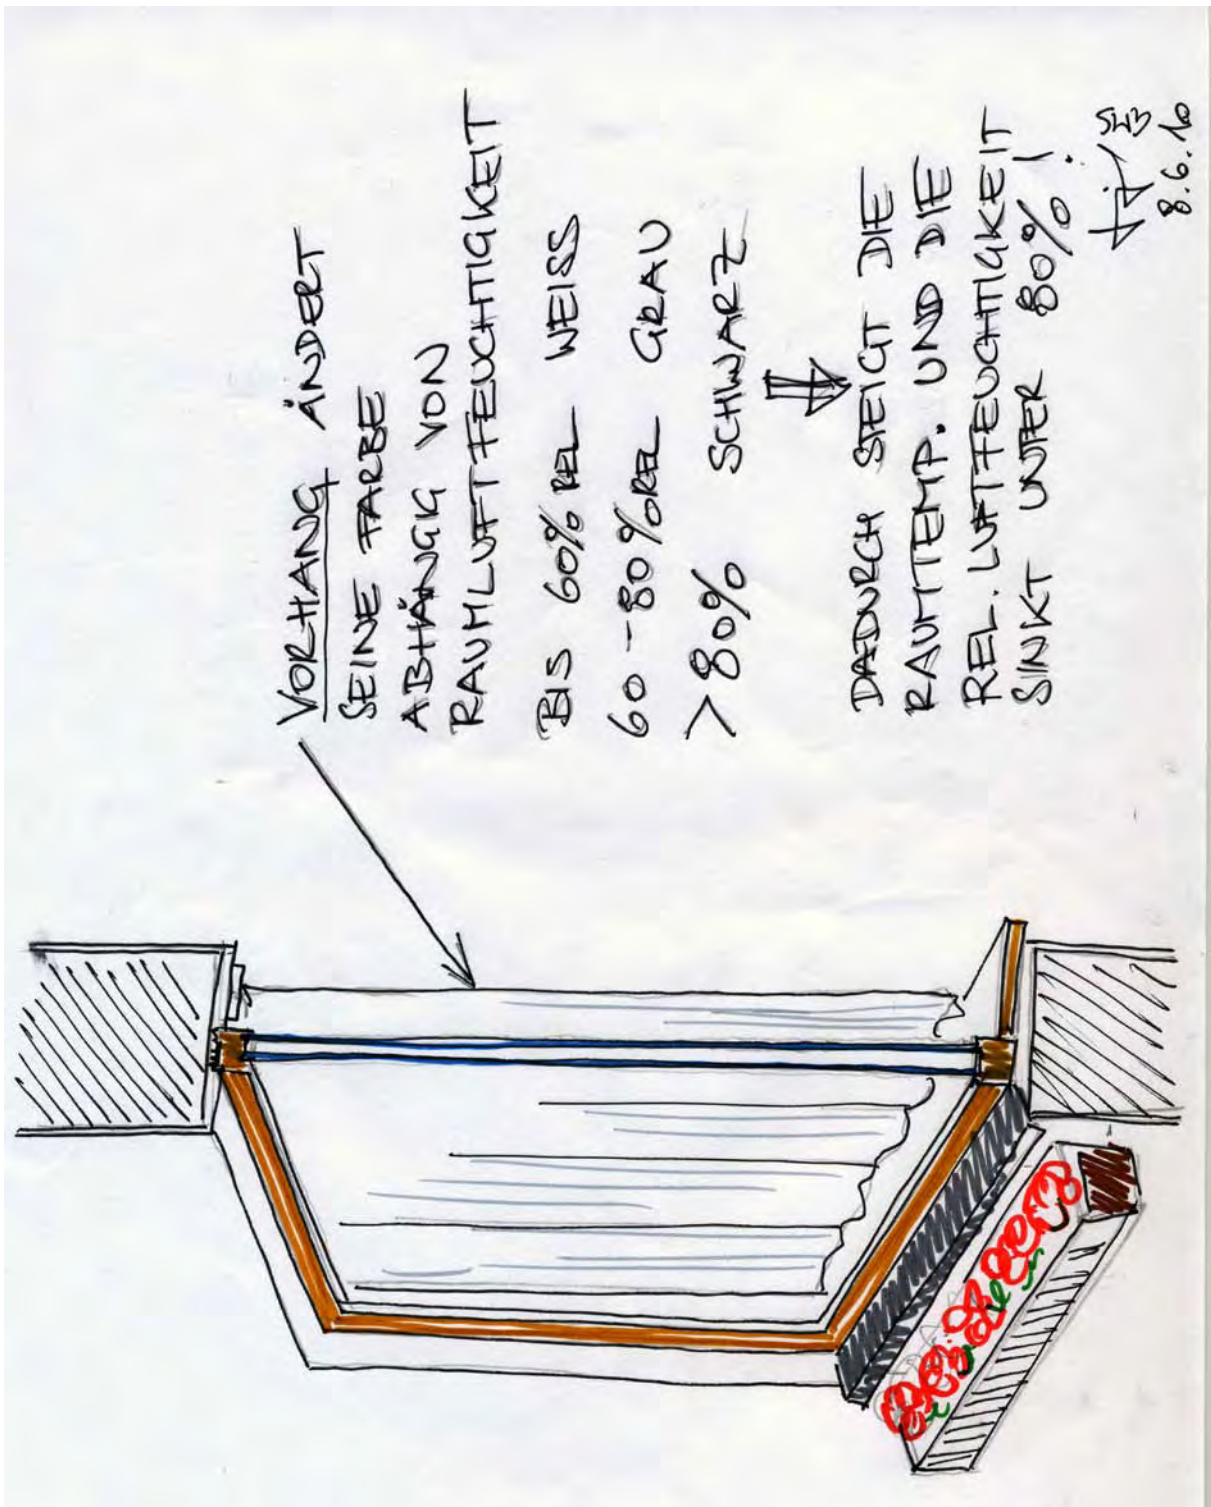 VORHANG ÄNDERT
SEINE FARBE
ABHÄNGIG VON
RAUMLUFTFEUCHTIGKEIT
BIS 60% REL WEISS
60-80% REL GRAU
>80% SCHWARZ
DADURCH STEIGT DIE
RAUMTEMP. UND DIE
REL. LUFTFEUCHTIGKEIT
SINKT UNTER 80%!
8.6.10